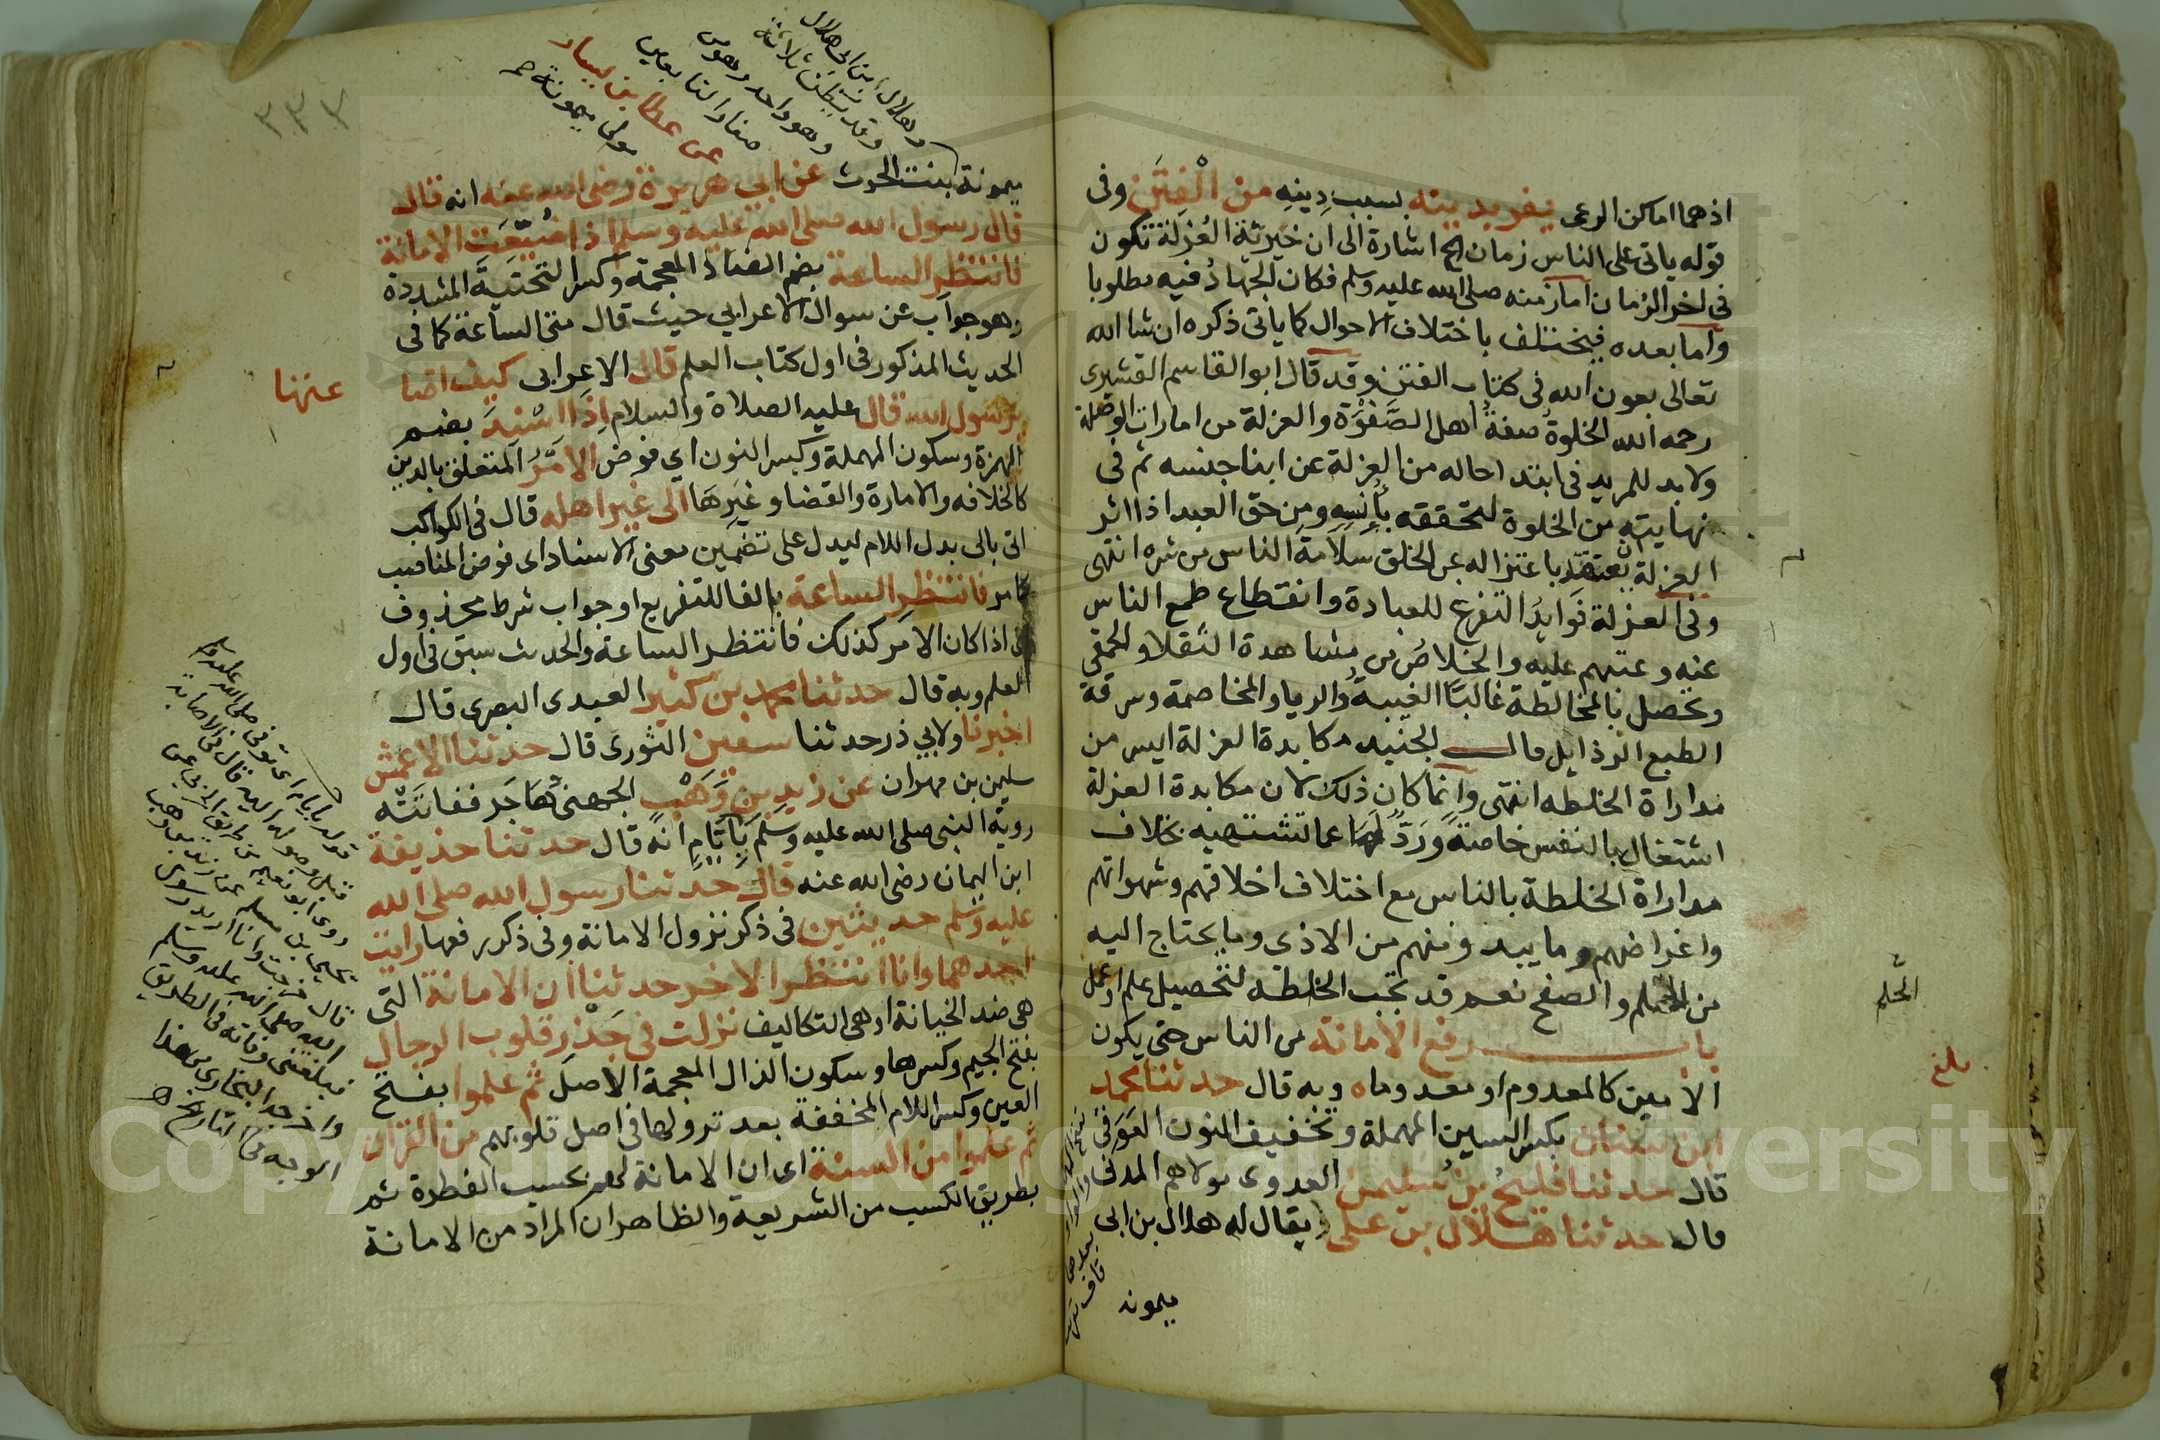 اذ هما اماكن الرعى يفر بدينه بسبب دِينِهِ من الْفِتَن وفى
قوله ياتى على الناس زمان الخ اشارة الى ان خيرية العُزلة تكون
فى اخر الزمان اما زمنه صلى الله عليه وسلم فكان الجهادُ فيه مطلوبا
واما بعده فيختلف باختلاف الاحوال كما ياتى ذكره ان شا الله
تعالى بعون الله فى كتاب الفتن وقد قال ابو القاسم القشيرى
رحمه الله الخلوة صفةُ اهل الصَّفوَة والعزلة من امارات الوصلة
ولا بد للمريد فى ابتداحاله من العزلة عن ابنا جنسه ثم فى
نهايته من الخلوة لتحققه بأُنسِهِ ومن حق العبد اذا اثر
العزلة ان يعتقد باعتزاله عن الخلق سلامة الناس من شره انتهى
وفى العزلة فَوايدُ التفرغ للعبادة وانقطاع طمع الناس
عنه وعتبهم عليه والخلاصُ من مشاهدة الثقلا والحمقى
وتحصل بالمخالطة غالبًا الغيبة والريا والمخاصمة وسرقة
الطبع الرذايل قال الجنيد مكابدة العزلة ايسر من
مداراة الخلطه انتهى وانما كان ذلك لان مكابدة العزلة
اشتغال بالنفس خاصةً وَرَدٌّ لَهَا عما تشتهيه بخلاف
مداراة الخلطة بالناس مع اختلاف اخلاقهم وشهواتهم
واغراضهم وما يبدو منهم من الاذى وما يحتاج اليه
من الحلم والصفح نعم قد تجب الخلطة لتحصيل علم او عمل
الحلم
باب رفع الامانة من الناس حتى يكون
بلغ
الامين كالمعدوم او معدوما وبه قال حدثنا محمد
ابن سنان بكسر السين المهملة وتخفيف النون العَوَقى
قال حدثنا فليح بن سُليمن العدوى مولاهم المدنى
قال حدثنا هلال بن على ويقال له هلال بن ابى
ميمونه
٢٣٧
وهلال ابن ابى هلال
وقد يظن ثلاثة
وهو واحد وهو من
صغار التابعين
عن عطا بن يسار
مولى ميمونة
ميمونة بنت الحرث عن ابى هريرة رضى الله عنه انه قال
قال رسول الله صلى الله عليه وسلم اذا ضُيِّعَت الامانة
فانتظر الساعة بضم الضاد المعجمة وكسر التحتية المشددة
وهو جواب عن سوال الاعرابى حيث قال متى الساعة كما فى
الحديث المذكور فى اول كتاب العلم قال الاعرابى كيف اضا
عتها
يرسول الله قال عليه الصلاة والسلام اِذَا اسْنِدَ بضم
الهمزة وسكون المهملة وكسر النون اى فوض الاَمْرُ المتعلق بالدين
كالخلافه والامارة والقضا وغيرهَا الى غيراهله قال فى الكواكب
اتى بالى بدل اللام ليدل على تضمين معنى الاسناد اى فوض المناصب
كما مر فانتظر الساعة بالفا للتفريع او جواب شرط محذوف
اى اذا كان الامر كذلك فانتظر الساعة والحديث سبق فى اول
العلم وبه قال حدثنا محمد بن كثير العبدى البصرى قال
اخبرنا ولابى ذر حدثنا سفين الثورى قال حدثنا الاعمش
سليمن بن مهران عن زيد بن وَهْب الجهنى هاجَر ففاتَتْه
روية النبى صلى الله عليه وسلم بأيَّامٍ انه قال حدثنا حذيفة
ابن اليمان رضى الله عنه قال حدثنا رسول الله صلى الله
عليه وسلم حديثين فى ذكر نزول الامانة وفى ذكر رفعها رايت
احدهما وانا انتظر الاخر حدثنا ان الامانة التى
هى ضد الخيانة او هى التكاليف نزلت فى جَذْر قلوب الرجال
بفتح الجيم وكسرها وسكون الذال المعجمة الاصل ثم علموا بفتح
العين وكسر اللام المخففة بعد نزولها فى اصل قلوبهم من القران
ثم علموا من السنة اى ان الامانة لهم بحسب الفطرة ثم
بطريق الكسب من الشريعة والظاهر ان المراد من الامانة
قوله بايام اى توفى صلى الله عليه وسلم
قبل وصوله اليه قال فى الاصابة
روى ابو نعيم من طريق
يحيى بن مسلم عن زيد بن وهب
قال خرجت وانا اريد رسول
الله صلى الله عليه وسلم
فبلغتنى وفاته فى الطريق
واخرجه البخارى من هذا
الوجه فى التاريخ
Copyright © King Saud University